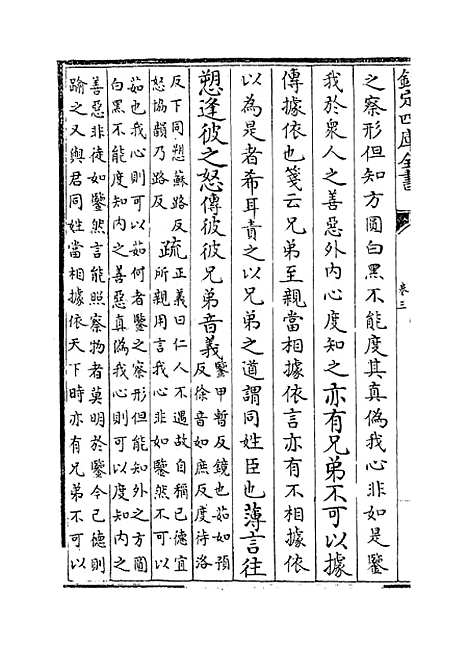 欽定四庫全書
卷三
之察形但知方圓白黑不能度其真偽我心非如是鑒
我於衆人之善惡外内心度知之亦有兄弟不可以據
傳據依也箋云兄弟至親當相據依言亦有不相據依
以為是者希耳責之以兄弟之道謂同姓臣也薄言往
愬逢彼之怒傳彼彼兄弟音義
鑒甲暫反鏡也茹如預
反徐音如庶反度待洛
反下同愬蘇路反
怒協韻乃路反
疏
正義曰仁人不遇故自稱已德宜
所親用言我心非如鑒然不可以
茹也我心則可以茹何者鑒之察形但能知外之方圓
白黑不能度知内之善惡真偽我心則可以度知内之
善惡非徒如鑒然言能照察物者莫明於鑒今已德則
踰之又與君同姓當相據依天下時亦有兄弟不可以